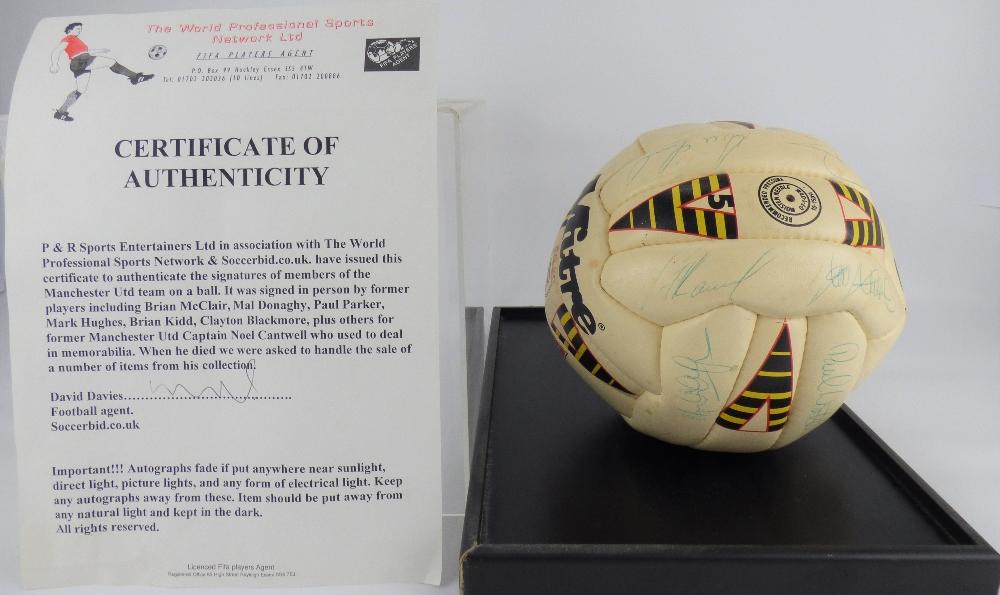 The World Professional Sports
Network Ltd
FIFA PLAYERS AGENT
FIFA PLAYERS
AGENT
P.O. Box 99 Hockley Essex SS5 4TW
Tel: 01702 202036 (10 lines) Fax: 01702 200086
CERTIFICATE OF
AUTHENTICITY
P & R Sports Entertainers Ltd in association with The World
Professional Sports Network & Soccerbid.co.uk. have issued this
certificate to authenticate the signatures of members of the
Manchester Utd team on a ball. It was signed in person by former
players including Brian McClair, Mal Donaghy, Paul Parker,
Mark Hughes, Brian Kidd, Clayton Blackmore, plus others for
former Manchester Utd Captain Noel Cantwell who used to deal
in memorabilia. When he died we were asked to handle the sale of
a number of items from his collection.
David Davies
Football agent.
Soccerbid.co.uk
Important!!! Autographs fade if put anywhere near sunlight,
direct light, picture lights, and any form of electrical light. Keep
any autographs away from these. Item should be put away from
any natural light and kept in the dark.
All rights reserved.
Licenced Fifa players Agent
mitre®
5
RECOMMENDED PRESSURE
MOISTEN NEEDLE